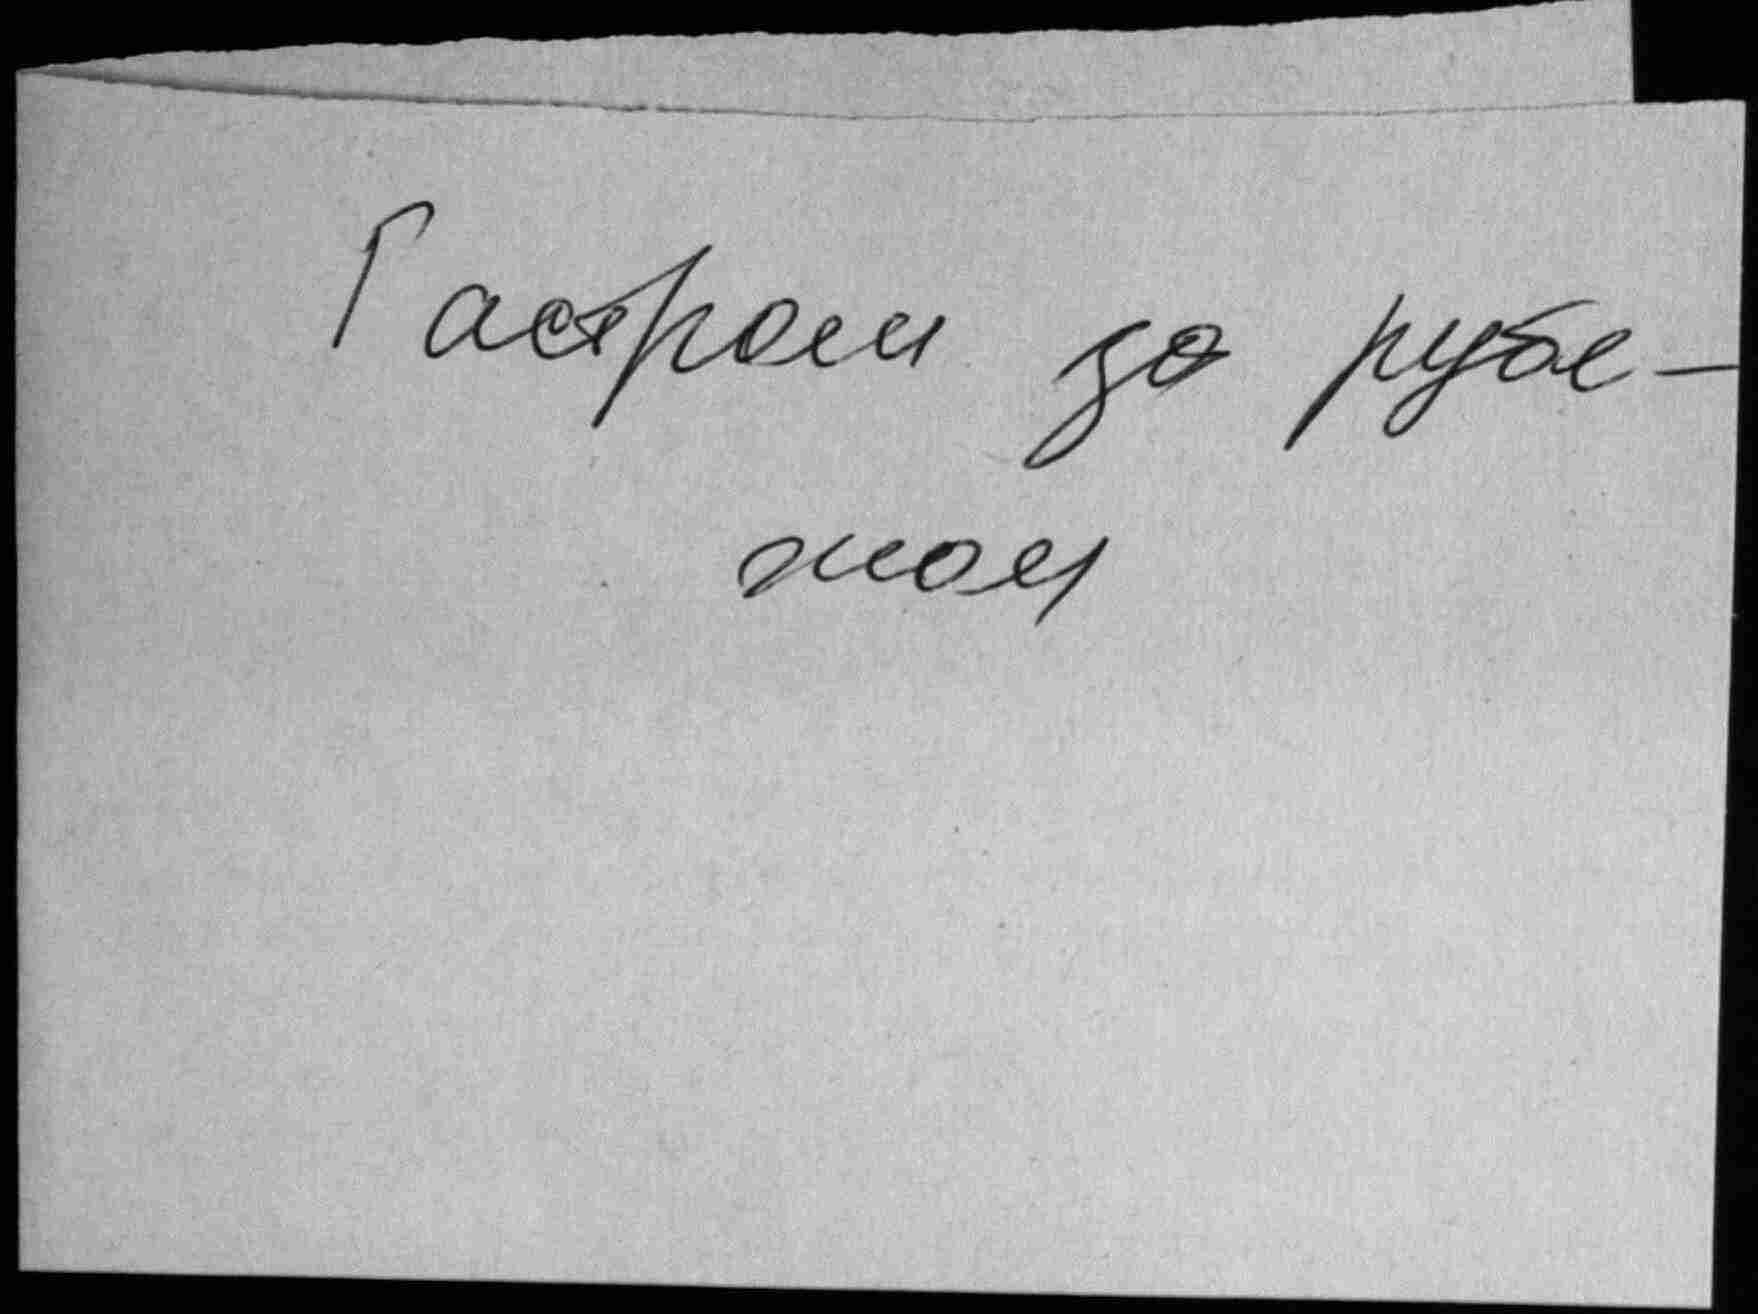 Гастроли за рубе-
жом